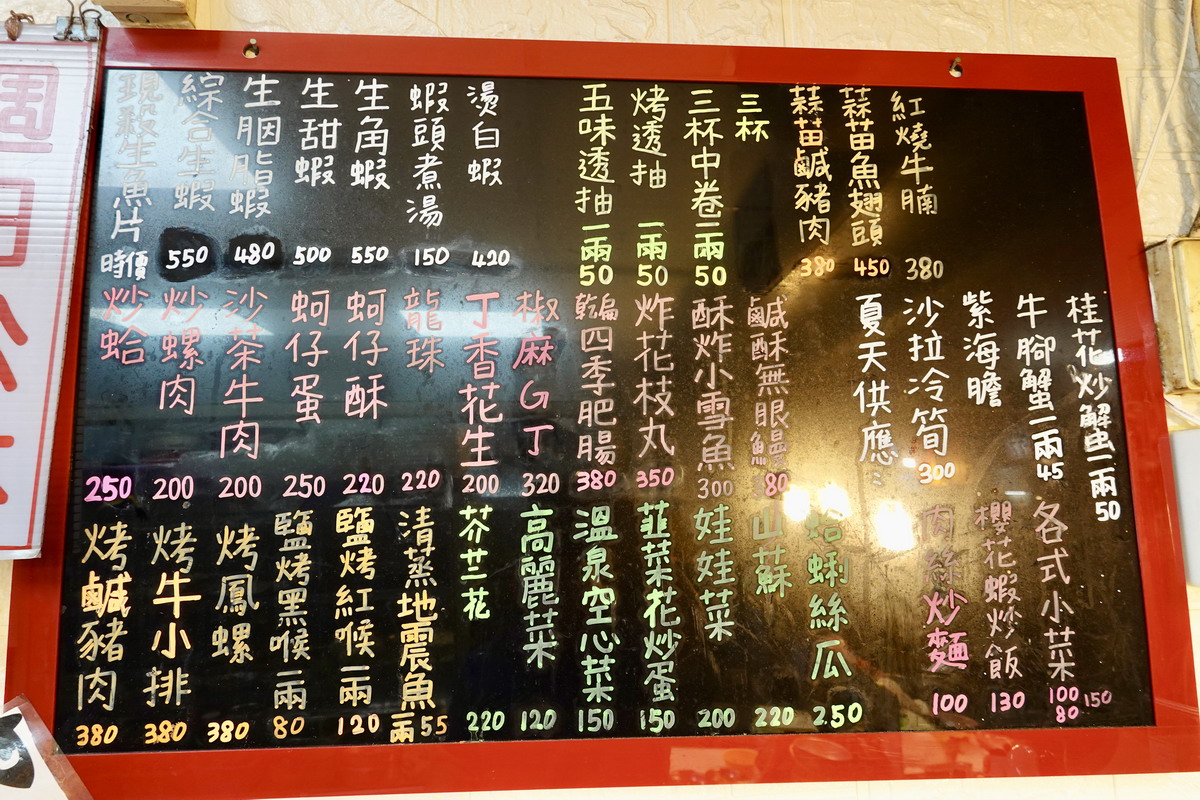 現殺生魚片 時價
綜合生蝦 550
生胭脂蝦 480
生甜蝦 500
生角蝦 550
蝦頭煮湯 150
燙白蝦 420
五味透抽一兩50
烤透抽 一兩50
三杯中卷一兩50
三杯
蒜苗鹹豬肉 380
蒜苗魚翅頭 450
紅燒牛腩 380
炒蛤 250
炒螺肉 200
沙茶牛肉 200
蚵仔蛋 250
蚵仔酥 220
龍珠 220
丁香花生 200
椒麻G丁 320
乾扁四季肥腸 380
炸花枝丸 350
酥炸小雪魚 300
鹹酥無眼鰻 80
夏天供應：
沙拉冷筍 300
紫海膽
牛腳蟹一兩45
桂花炒蟹一兩50
烤鹹豬肉 380
烤牛小排 380
烤鳳螺 380
鹽烤黑喉一兩 80
鹽烤紅喉一兩 120
清蒸地震魚兩55
芥艹二花 220
高麗菜 120
溫泉空心菜 150
韮菜花炒蛋 150
娃娃菜 200
山蘇 220
蛤蜊絲瓜 250
肉絲炒麵 100
櫻花蝦炒飯 130
各式小菜 100 150 80